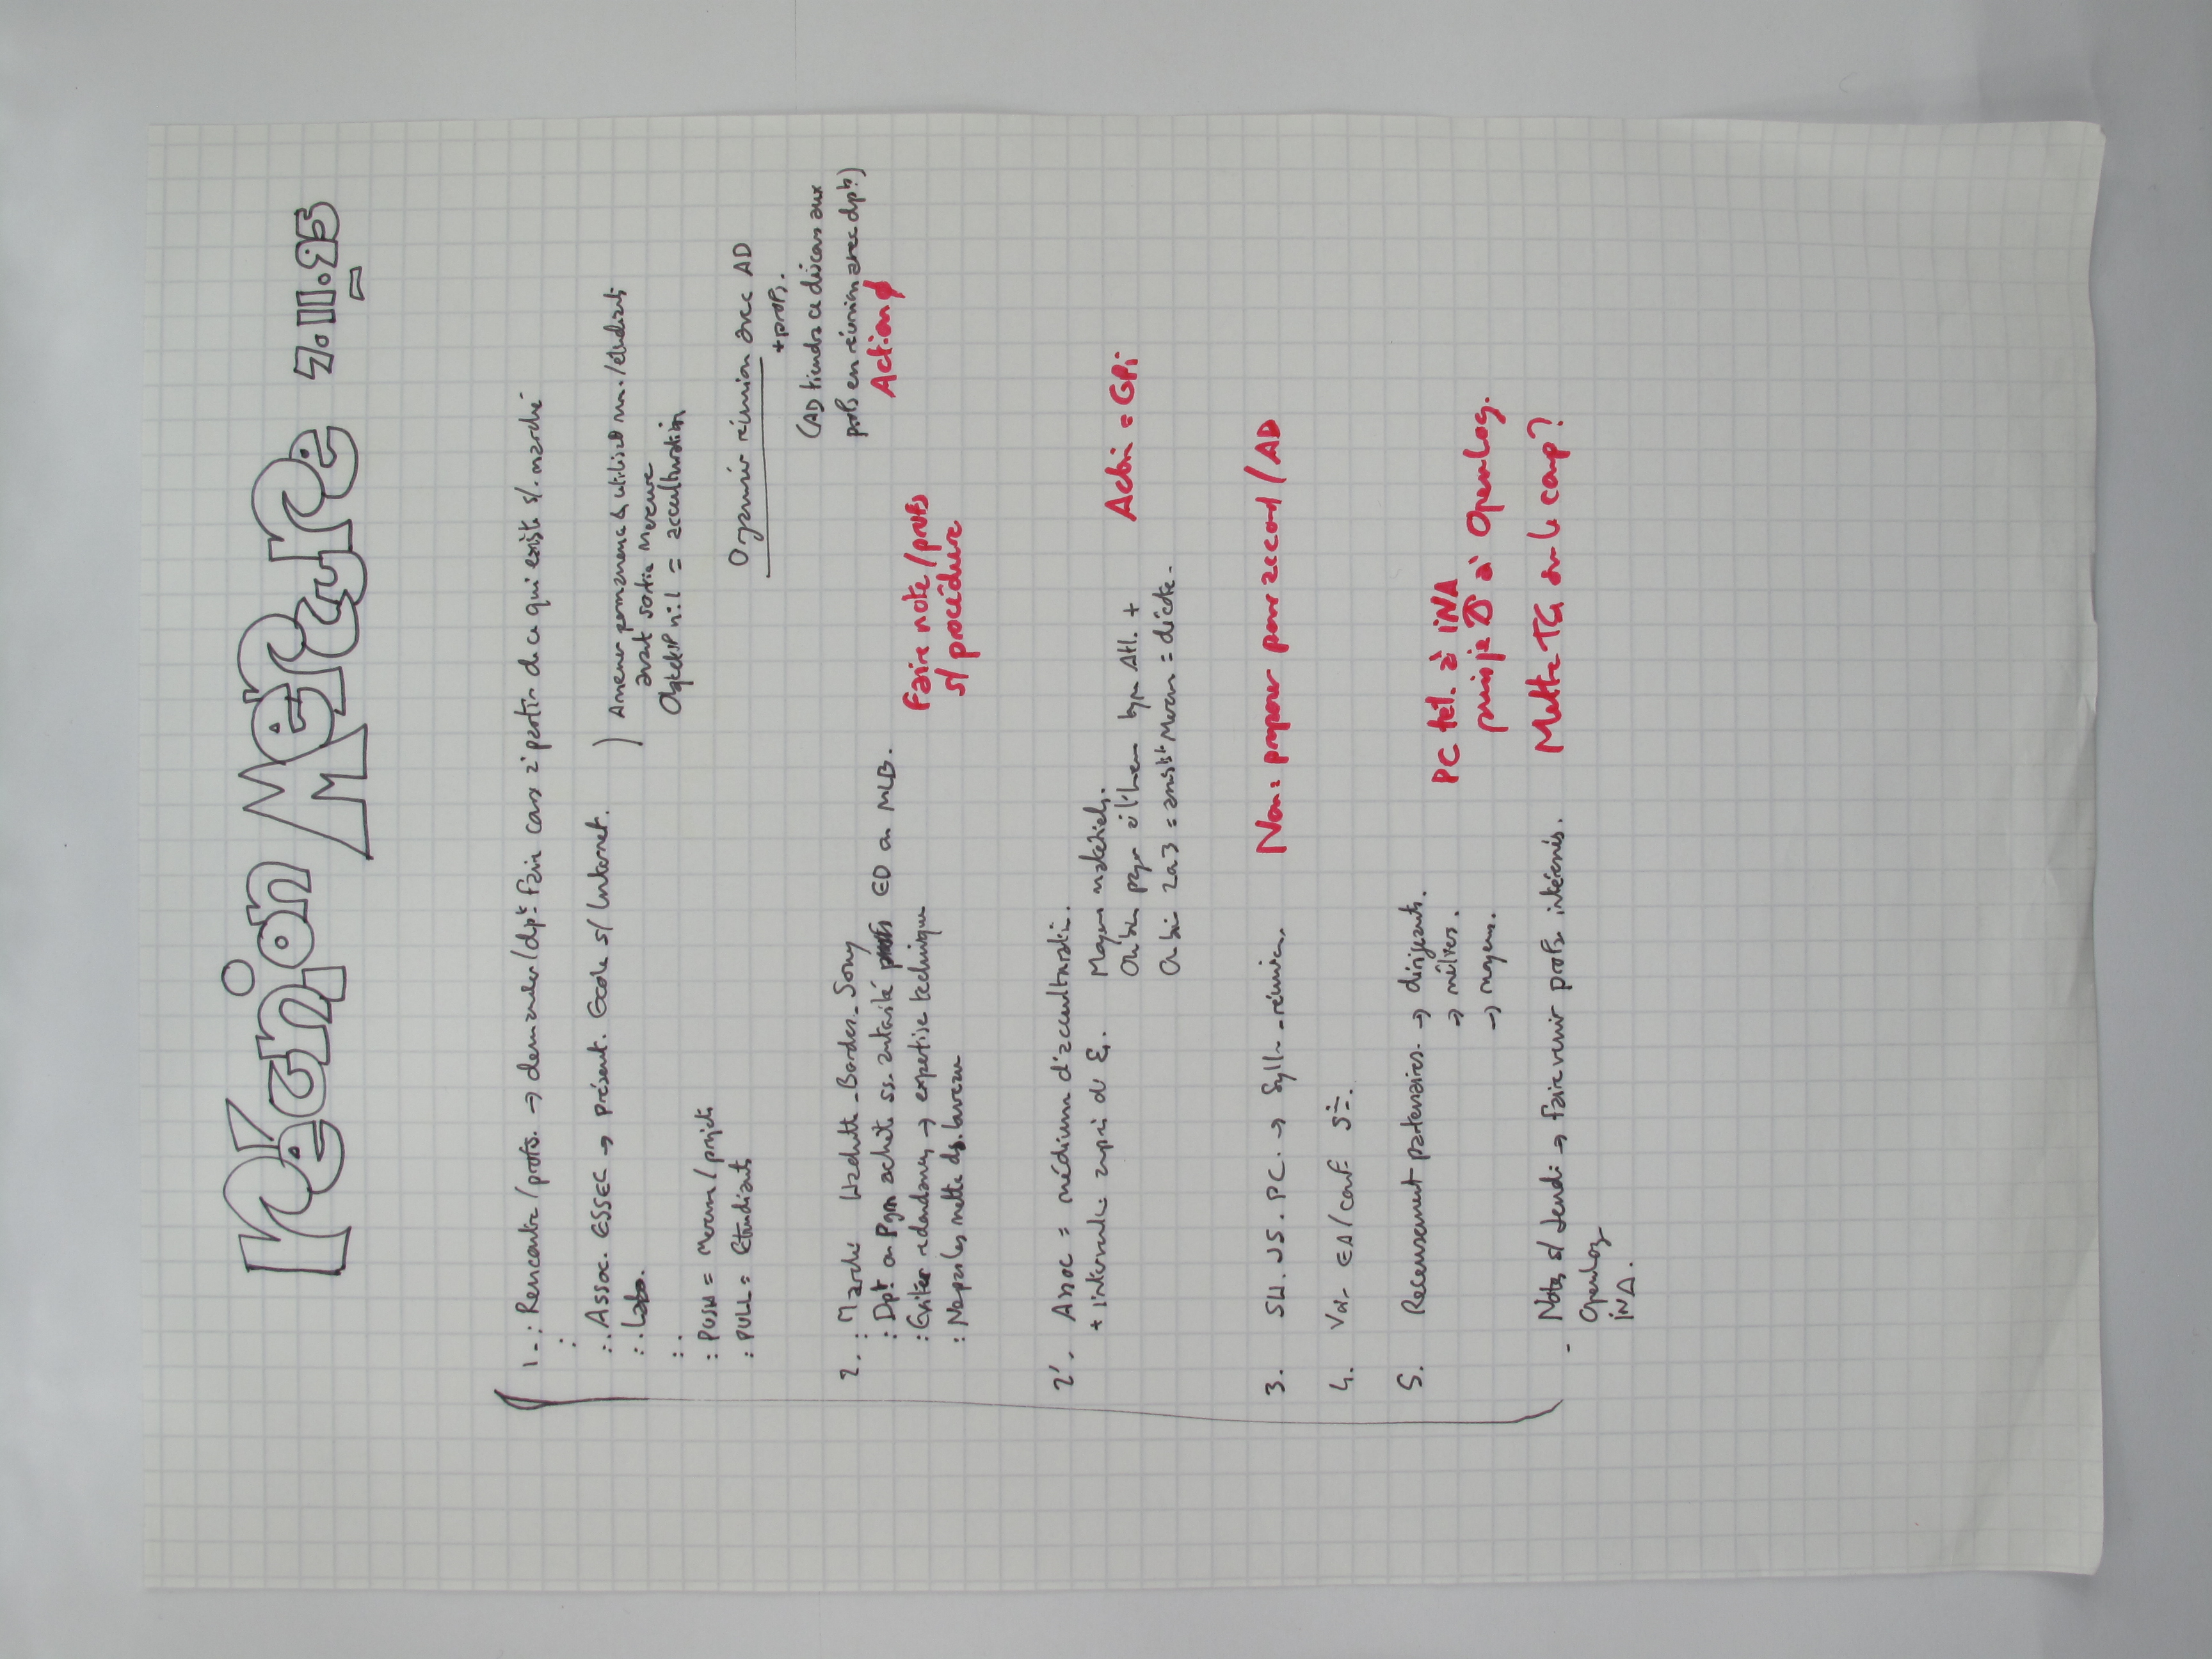 Réunion Mercure 7.11.95
1-: Rencontre/profs. → demander/dpt. faire cours à partir de ce qui existe s/. marché
:
:. Assoc. ESSEC → présent. Ecole s/ Internet.
:. Labo.
) Amener permanence & utilisat° /étudiants
avant sortie Mercure
Objectif n:1 = acculturation
:.
: PUSH = Mercure/projets
: PULL = Etudiants
Organiser réunion avec AD
+ profs.
(AD tiendra ce discours aux
profs en réunion avec dpt)
Action ϕ
2. : Marché Hachette-Bordas-Sony
: Dpt ou Pgm achète ss. autorité ED ou MLB.
: Eviter redondances → expertise technique
: Ne pas les mettre ds. bureau
Faire note/profs
s/ procédure
2'. Assoc = médium d'acculturation.
+ intervenir auprès de E.
Moyens matériels.
Ou bien payer à l'heure type Atl. +
Ou bien 2 ou 3 = Mercure = décote.
Action = GPi
3. SH. JS. PC. → Sylla - réunion.
Non: proposer pour accord/AD
4. Voir EA/conf
5. Recensement partenaires. → dirigeants.
→ métiers.
→ moyens.
PC tél. à iNA
puis je à Openlog.
- Notes s/ Jeudi → faire venir profs. intéressés.
Openlog
iNA.
Mettre TG sur le coup?